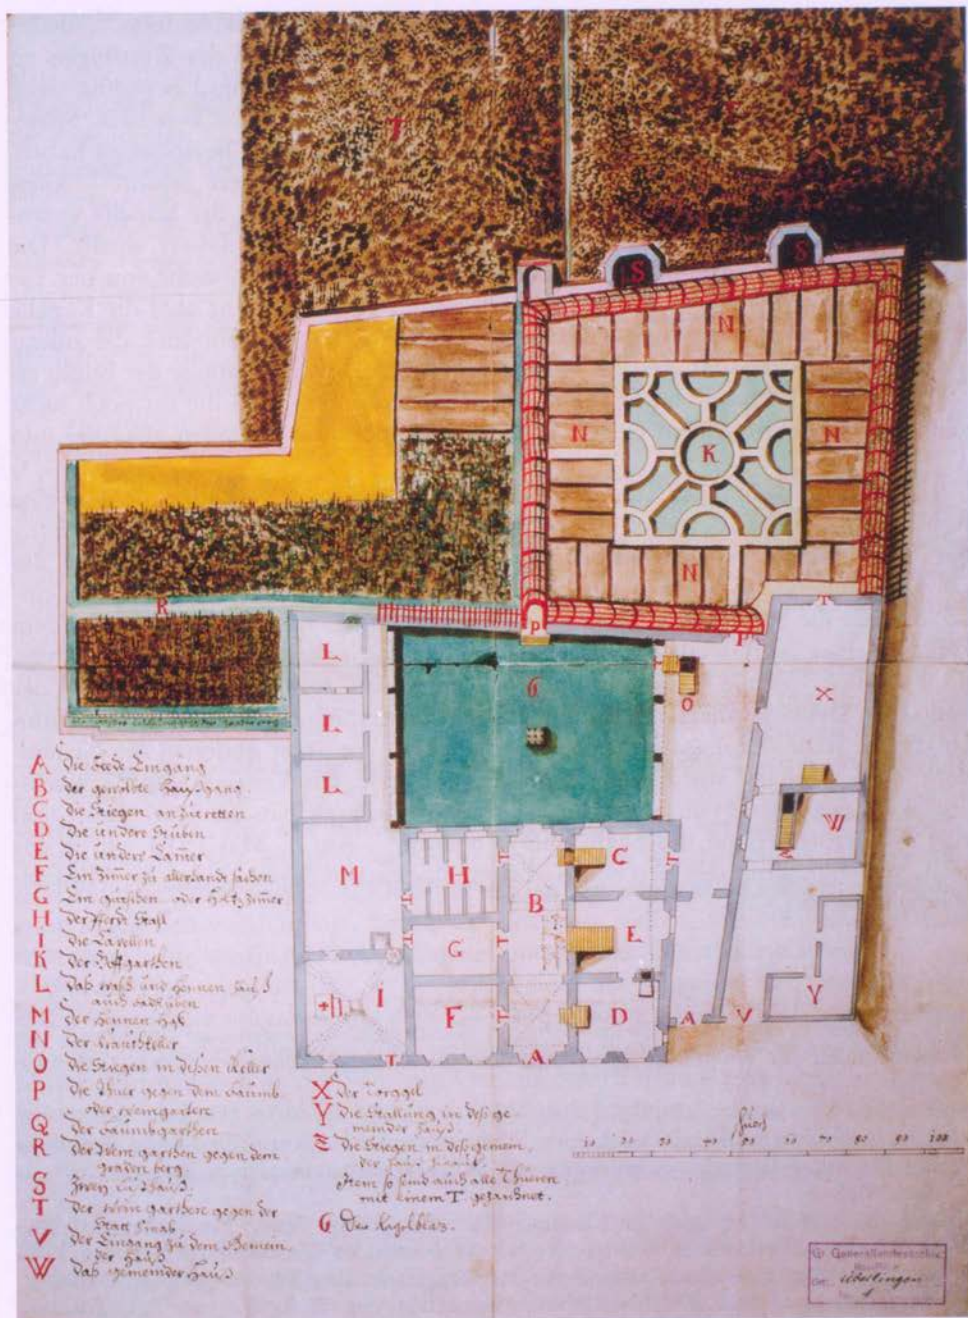 T
S
S
N
N
K
N
N
R
P
P
T
L
L
L
6
O
X
W
Z
M
H
G
I
F
B
C
E
D
A
A
V
Y
T
A Die beede Eingäng
B Der gewölbte Haußgang.
C Die Stiegen
D Die undere Stuben
E Die undere Camer
F Ein Zimer zu allerhandt sachen
G Ein oder Holtz zimer
H Der Pferdt Stahl
I Die Capellen
K Der Hoffgarthen
L Daß und Hennen
auch
M Der Hennen Hof
N Der
O Die Stiegen in disen Keller
P Die Thür gegen dem Baumb
oder Weingarten
Q Der Baumbgarthen
R Der Wein garthen gegen dem
graden berg
S Zwey Lusthauß
T Der Wein garthen gegen der
Statt hinab
V Der Eingang zu dem Gemein
der Hauß
W Daß gemeinder Hauß
X Der Torggel
Y Die Stallung in deß ge
meinder Hauß
Z Die Stiegen in deß gemein
der Hauß hinauf
Item so seind auch alle Thüren
mit einem T gezaichnet.
6 Der Kegelblaz.
Schuch
10 20 30 40 50 60 70 80 90 100
Gr. Generallandesarchiv
Überlingen